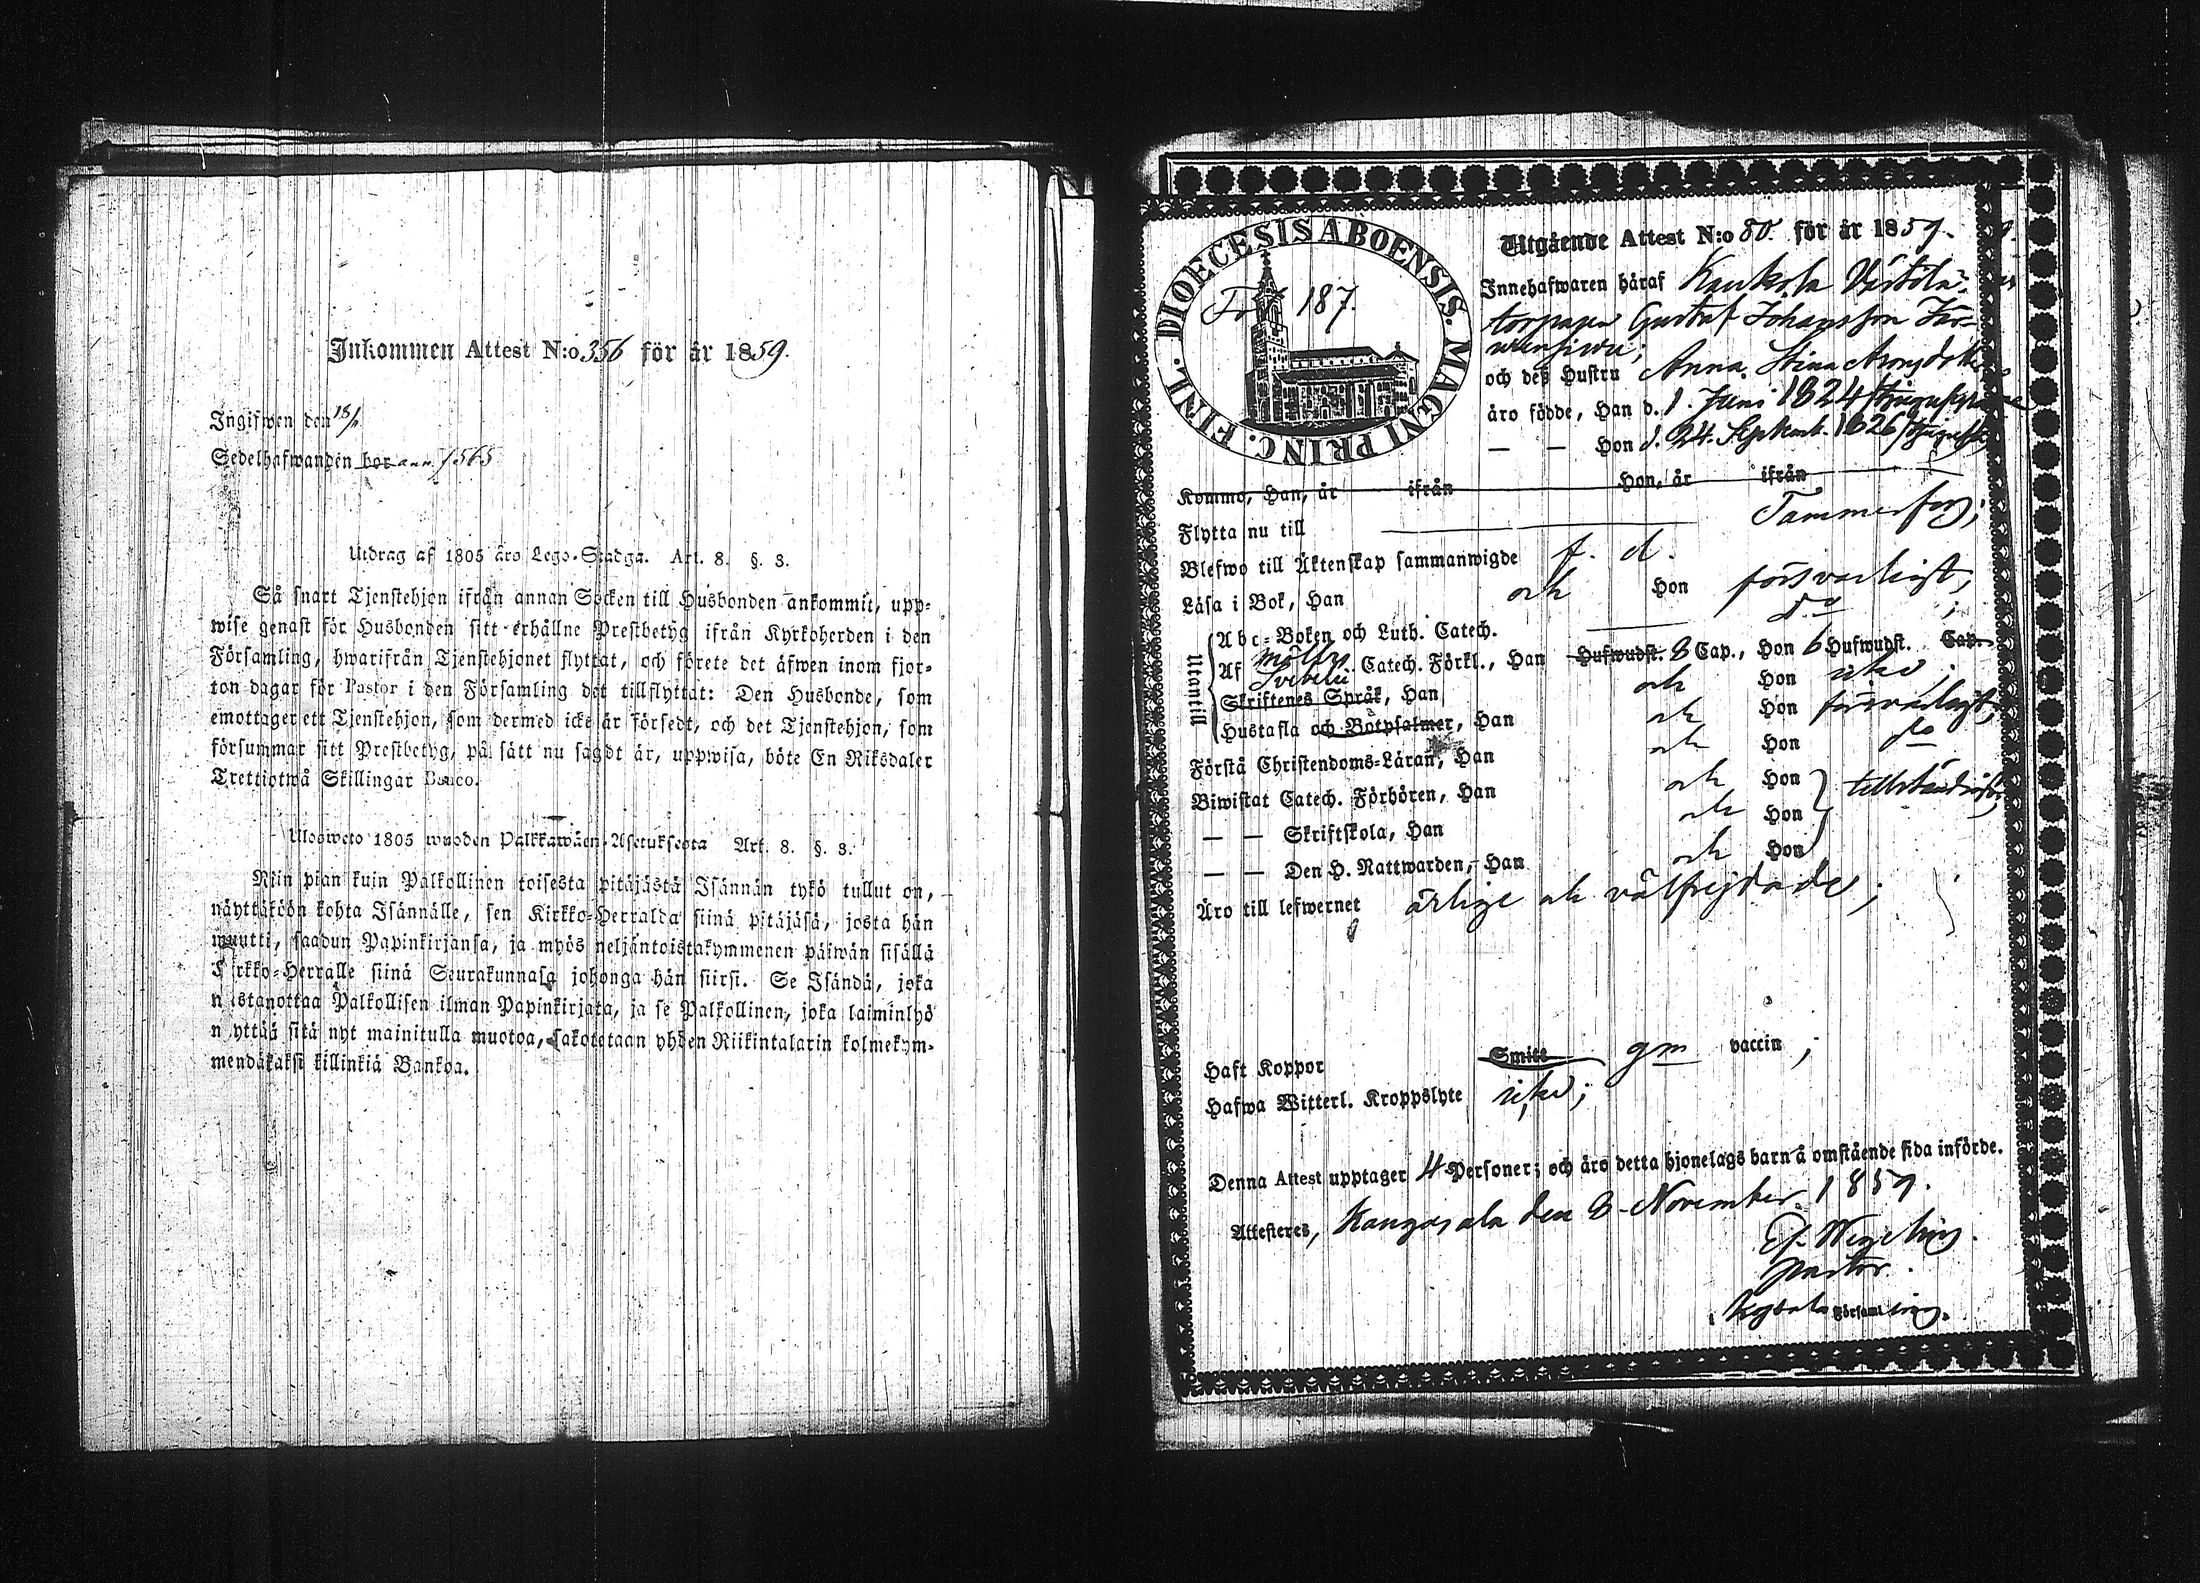 Inkommen Attest N:o 356 för år 1859.
Ingifwen den 18/1
Sedelhafwanden bor ann. 1565
Utdrag af 1805 års Lego-Stadga. Art. 8. §. 3.
Så snart Tjenstehjon ifrån annan Socken till Husbonden ankommit, upp-
wise genast för Husbonden sitt erhållne Prestbetyg ifrån Kyrkoherden i den
Församling, hwarifrån Tjenstehjonet flyttat, och förete det äfwen inom fjor-
ton dagar för Pastor i den Församling det tillflyttat: Den Husbonde, som
emottager ett Tjenstehjon, som dermed icke är försedt, och det Tjenstehjon, som
försummar sitt Prestbetyg, på sätt nu sagdt är, uppwisa, böte En Riksdaler
Trettiotwå Skillingar Banco.
Ulosweto 1805 wuoden Palkkawäen-Asetuksesta Art. 8. §. 3.
Niin pian kuin Palkollinen toisesta pitäjästä Isännän tykö tullut on,
näyttäköön kohta Isännälle, sen Kirkko-Herralda siinä pitäjäsä, josta hän
muutti, saadun Papinkirjansa, ja myös neljäntoistakymmenen päiwän sisällä
Kirkko-Herralle siinä Seurakunnasa johonga hän siirsi. Se Isändä, joka
n istanottaa Palkollisen ilman Papinkirjata, ja se Palkollinen, joka laiminlyö
n yttää sitä nyt mainitulla muotoa, sakotetaan yhden Riikintalarin kolmekym-
mendäkaksi killinkiä Bankoa.
FINL. DIOECESIS ABOENSIS. MAGNI PRINC.
Fol. 187.
Utgående Attest N:o 80. för år 1859.
Innehafwaren häraf Kaukola Västilä
torparen Gustaf Johansson Jär-
wensiwu;
och deß Hustru Anna Stina Aronsdotter
äro födde, Han d. 1. Juni 1824
— — Hon d. 24. Septemb. 1826
Kommo, Han, år ifrån Hon, år ifrån
Flytta nu till Tammerfors;
Blefwo till Äktenskap sammanwigde f. d.
Läsa i Bok, Han och Hon försvarligt,
Utantill
Abc-Boken och Luth. Catech. do ;
Af Möllers Catech. Förkl., Han Hufwudst. 8 Cap., Hon 6 Hufwudst. Cap.
Svebelii
Skriftenes Språk, Han och Hon icke ;
Hustafla och Botpsalmer, Han och Hon försvarligt;
Förstå Christendoms-Läran, Han och Hon do
Biwistat Catech. Förhören, Han och Hon
— — Skriftskola, Han och Hon
— — Den H. Nattwarden, Han och Hon
Äro till lefwernet ärlige och välfrejdade;
Haft Koppor Smitt gm vaccin ;
Hafwa Witterl. Kroppslyte icke;
Denna Attest upptager 4 Personer; och äro detta hjonelags barn å omstående sida införde.
Attesteres, Kangasala den 8 November 1859.
Pastor.
i Kgsala Församling.